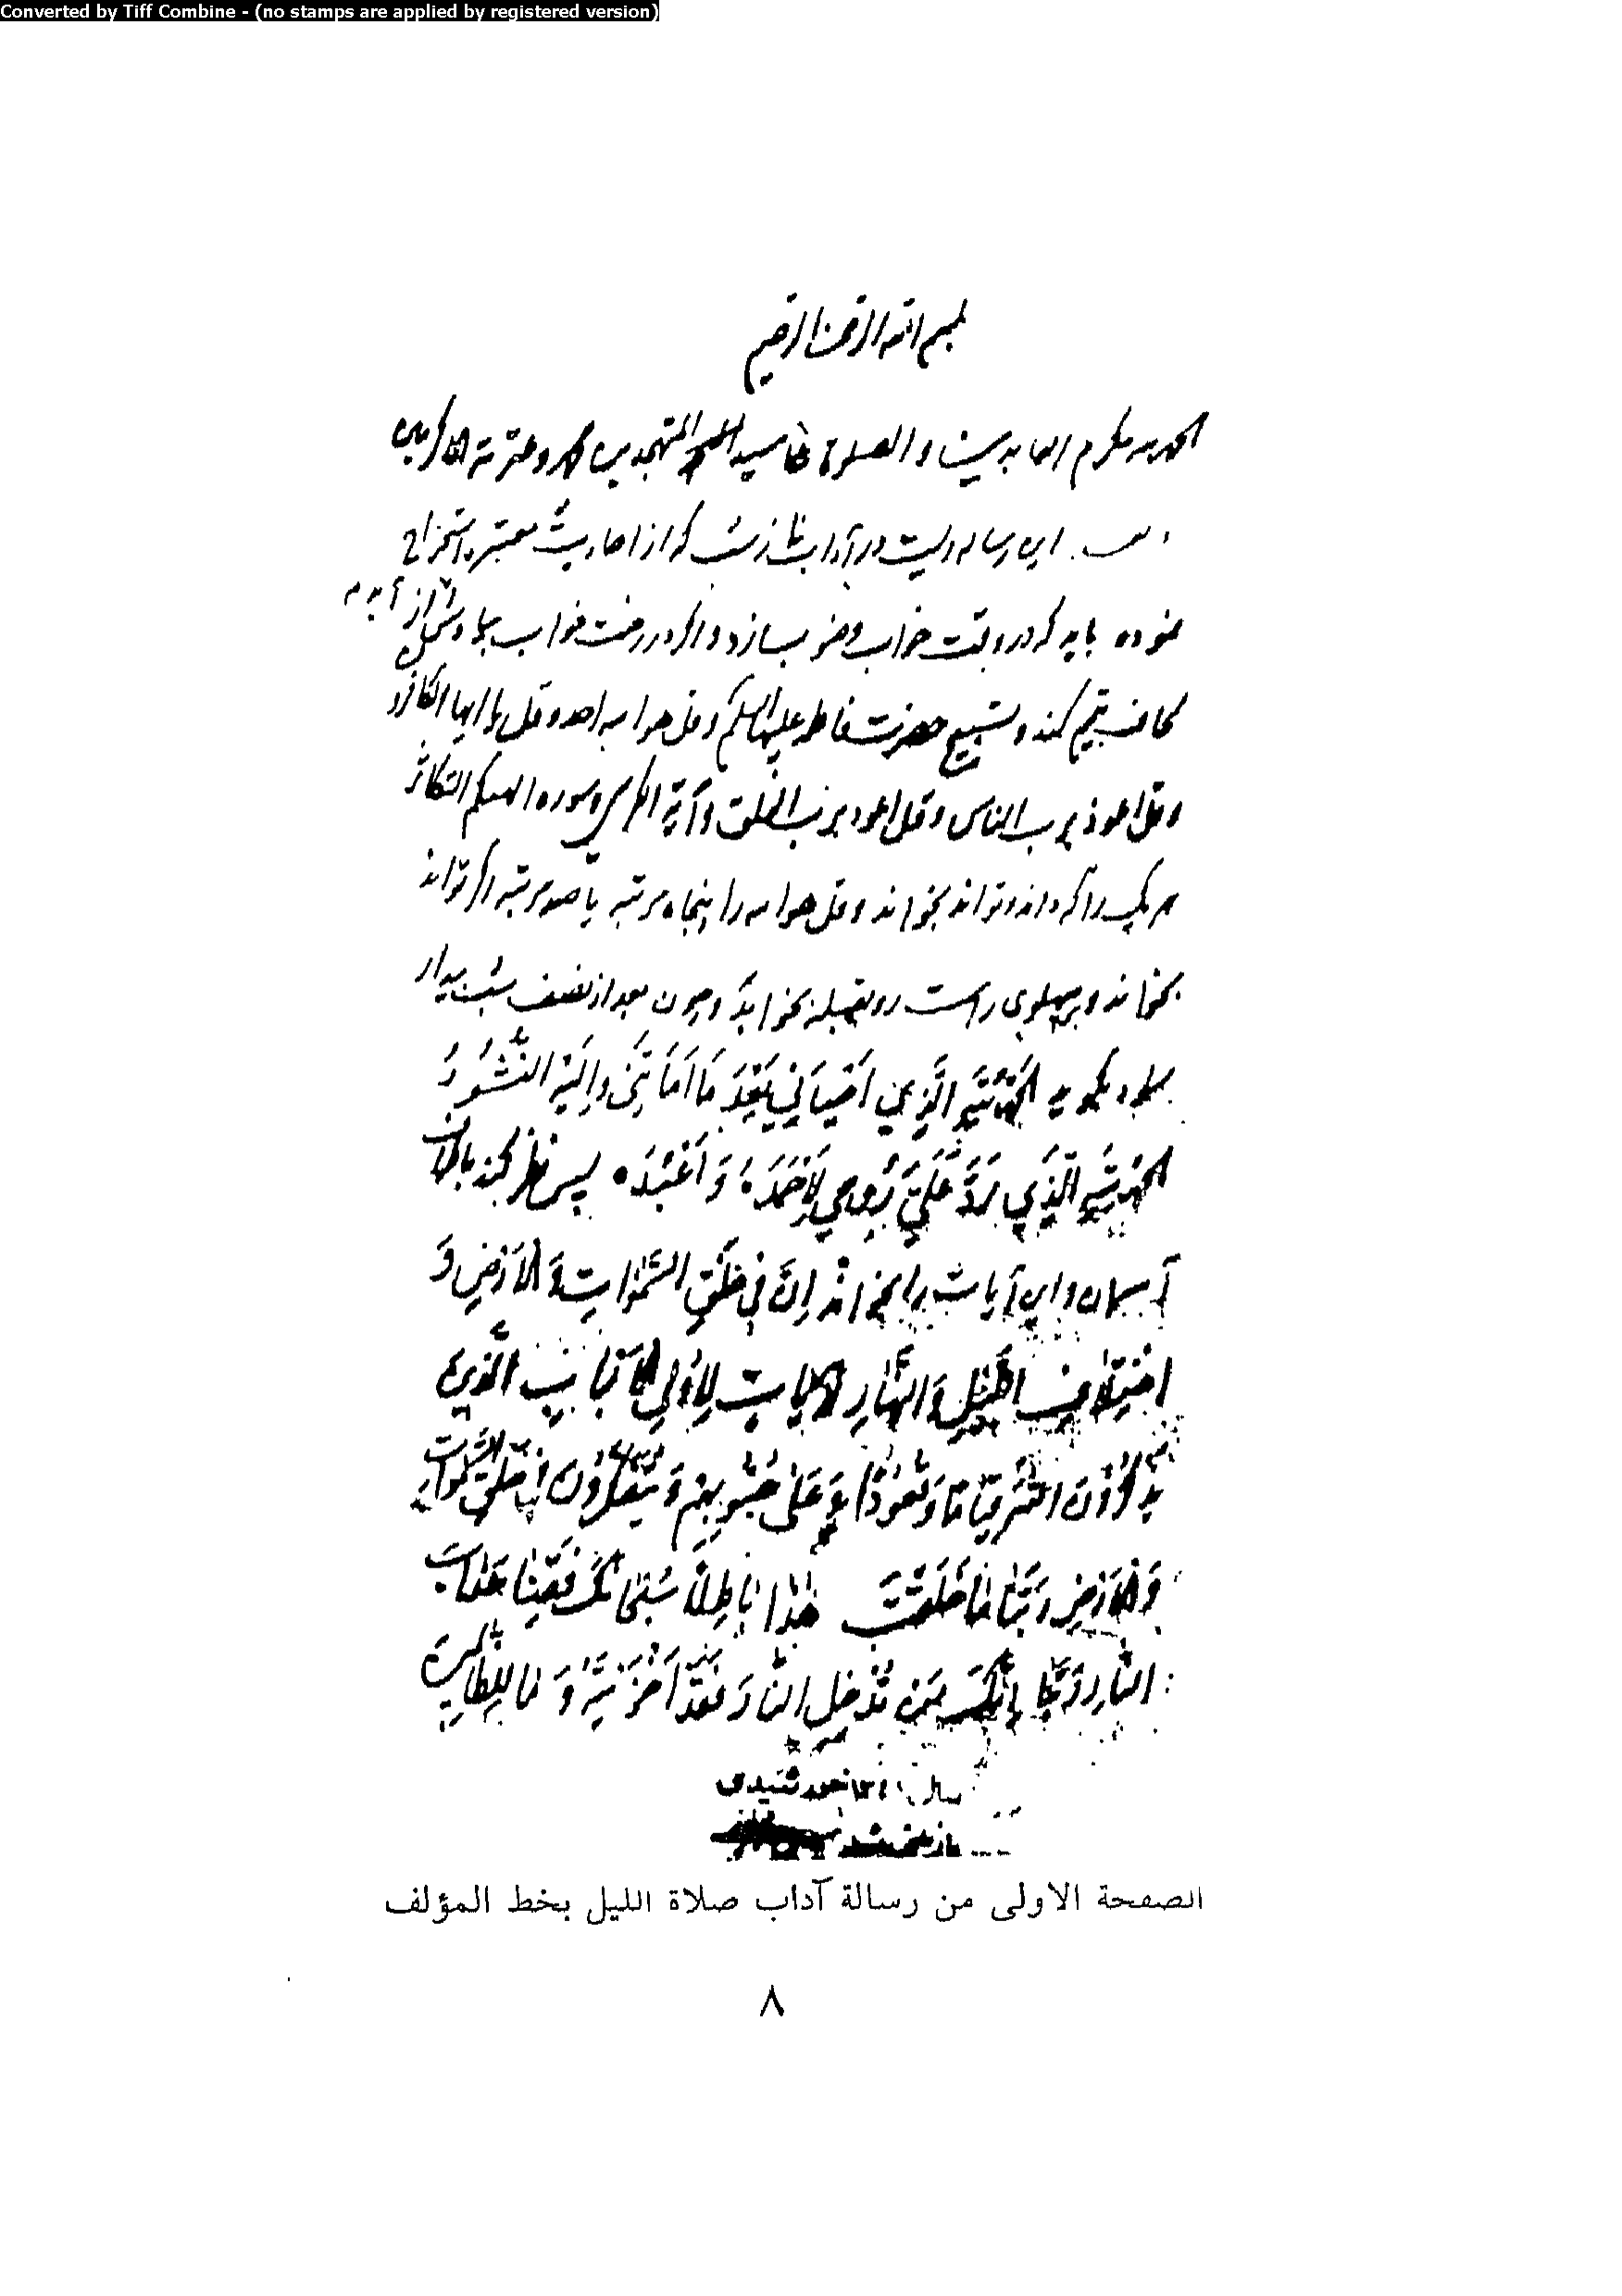 Converted by Tiff Combine - (no stamps are applied by registered version)
بسم الله الرحمن الرحيم
الحمد لله مكرم العابدين والصلوة على سيد المتهجدين محمد وعترته الاكرمين
اين رساله ايست در آداب نماز شب كه از احاديث معتبره استخراج
نموده بايد كه در وقت خواب وضو بسازد واگر در رخت خواب
لحاف تيمم كند و تسبيح حضرت فاطمه عليها السلم وقل هو الله احد وقل يا ايها الكافرون
وقل اعوذ برب الناس وقل اعوذ برب الفلق وآية الكرسي وسوره الهيكم التكاثر
هر يك را كه داند وتواند بخواند وقل هو الله را پنجاه مرتبه يا صد مرتبه اگر تواند
بخواند و بر پهلوى راست رو بقبله بخوابد و چون بعد از نصف شب بيدار
بگويد اَلحَمْدُ لِلّهِ الَّذِي اَحْيَانِي بَعْدَ مَا اَمَاتَنِي وَاِلَيْهِ النُّشُورُ
الحَمْدُ لِلّهِ الَّذِي رَدَّ عَلَيَّ رُوحِي لِاَحْمَدَهُ وَ اَعْبُدَهُ پس نظر كند باطراف
آسمان و اين آيات را بخواند اِنَّ فِي خَلْقِ السَّمٰوَاتِ وَ الاَرْضِ وَ
اخْتِلافِ اللَّيْلِ وَ النَّهارِ لَآيَاتٍ لِاُولِي الاَلْبَابِ الَّذِينَ
يَذْكُرُونَ اللّهَ قِيَامًا وَقُعُودًا وَ عَلىٰ جُنُوبِهِمْ وَ يَتَفَكَّرُونَ فِي خَلْقِ السَّمٰوَاتِ
وَ الاَرْضِ رَبَّنَا مَا خَلَقْتَ هٰذَا بَاطِلاً سُبْحَانَكَ فَقِنَا عَذَابَ
النَّارِ رَبَّنَا اِنَّكَ مَنْ تُدْخِلِ النَّارَ فَقَدْ اَخْزَيْتَهُ وَ مَا لِلظَّالِمِينَ
الصفحة الاولى من رسالة آداب صلاة الليل بخط المؤلف
٨